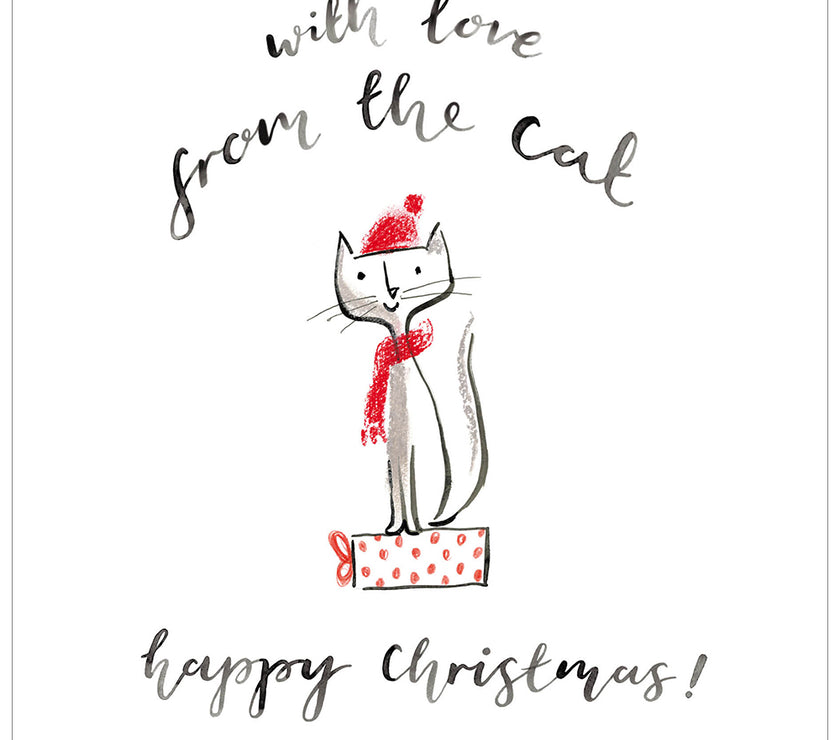 with love
from the cat
happy Christmas!